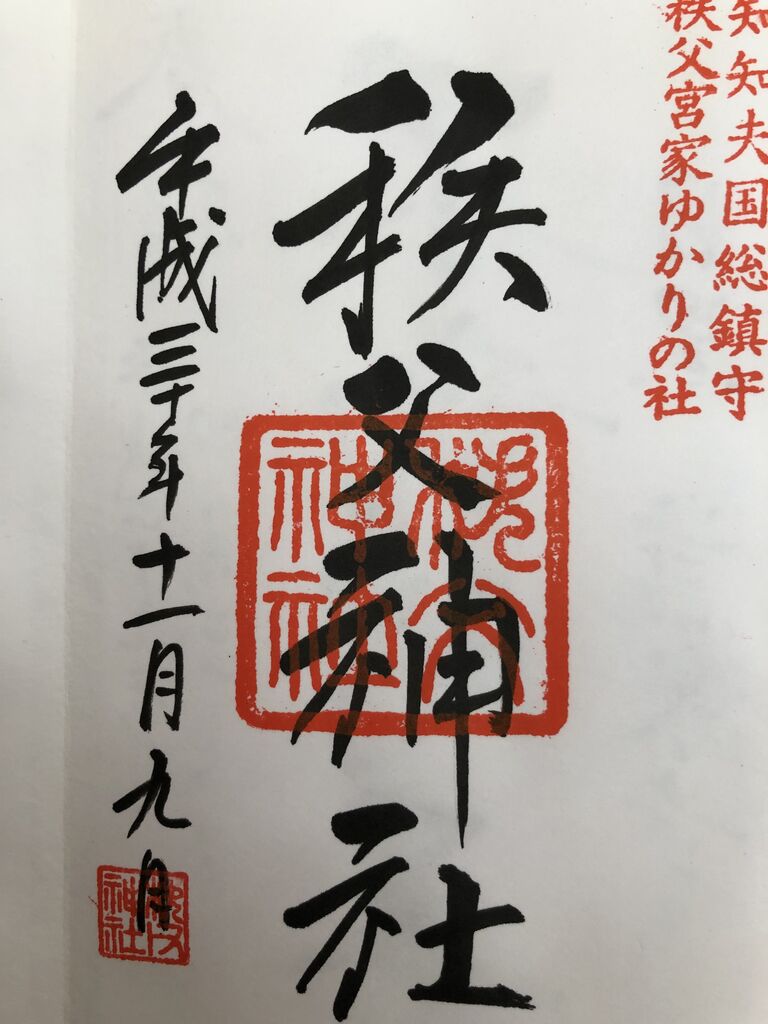 知知夫国総鎮守
秩父宮家ゆかりの社
秩父神社
秩父神社
平成三十年十一月九日
秩父神社